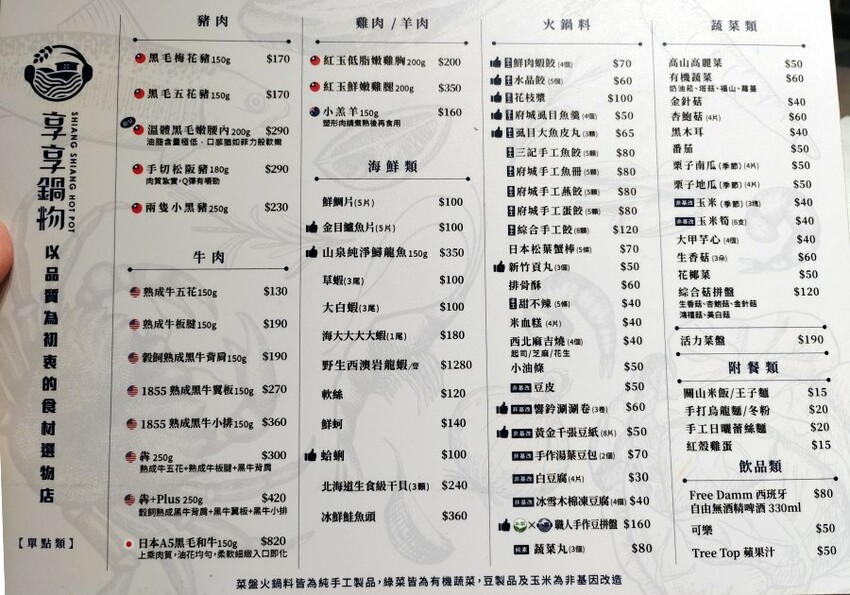 享享鍋物
SHIANG SHIANG HOT POT
以品質為初衷的食材選物店
【單點類】
豬肉
黑毛梅花豬150g $170
黑毛五花豬150g $170
溫體黑毛嫩腰內200g $290
油脂含量極低、口感猶如菲力般軟嫩
手切松阪豬180g $290
肉質紮實,Q彈有嚼勁
兩隻小黑豬250g $230
牛肉
熟成牛五花150g $130
熟成牛板腱150g $190
穀飼熟成黑牛背肩150g $190
1855 熟成黑牛翼板150g $270
1855 熟成黑牛小排150g $360
犇 250g $300
熟成牛五花+熟成牛板腱+黑牛背肩
犇+Plus 250g $420
穀飼熟成黑牛背肩+黑牛翼板+黑牛小排
日本A5黑毛和牛150g $820
上乘肉質,油花均勻,柔軟細緻入口即化
雞肉/羊肉
紅玉低脂嫩雞胸200g $200
紅玉鮮嫩雞腿200g $350
小羔羊150g $160
塑形肉請煮熟後再食用
海鮮類
鮮鯛片(5片) $100
金目鱸魚片(5片) $100
山泉純淨鱘龍魚150g $350
草蝦(3尾) $100
大白蝦(3尾) $100
海大大大大蝦(1尾) $180
野生西澳岩龍蝦/隻 $1280
軟絲 $120
鮮蚵 $140
蛤蜊 $100
北海道生食級干貝(3顆) $240
冰鮮鮭魚頭 $360
火鍋料
鮮肉蝦餃(4個) $70
水晶餃(5個) $60
花枝漿 $100
府城虱目魚羹(4個) $50
虱目大魚皮丸(3顆) $65
三記手工魚餃(5顆) $80
府城手工魚冊(5顆) $80
府城手工燕餃(5顆) $80
府城手工蛋餃(5顆) $80
綜合手工餃(8顆) $120
日本松葉蟹棒(5條) $70
新竹貢丸(3個) $50
排骨酥 $60
甜不辣(5條) $40
米血糕(4片) $40
西北麻吉燒(4個) $40
起司/芝麻/花生
小油條 $50
非基改 豆皮 $50
非基改 響鈴涮涮卷(3卷) $60
非基改 黃金千張豆紙(8片) $50
非基改 手作湯葉豆包(2個) $70
非基改 白豆腐(4片) $30
非基改 冰雪木棉凍豆腐(4個) $40
職人手作豆拼盤 $160
純素 蔬菜丸(3個) $80
蔬菜類
高山高麗菜 $50
有機蔬菜 $60
奶油菘、塔菇、福山、蘿蔓
金針菇 $40
杏鮑菇(4片) $60
黑木耳 $40
番茄 $50
栗子南瓜(季節)(4片) $50
栗子地瓜(季節)(4片) $50
非基改 玉米(季節)(3塊) $40
非基改 玉米筍(6支) $40
大甲芋心(4個) $40
生香菇(3朵) $60
花椰菜 $50
綜合菇拼盤 $120
生香菇、杏鮑菇、金針菇
鴻禧菇、美白菇
活力菜盤 $190
附餐類
關山米飯/王子麵 $15
手打烏龍麵/冬粉 $20
手工日曬蕾絲麵 $20
紅殼雞蛋 $15
飲品類
Free Damm 西班牙 $80
自由無酒精啤酒 330ml
可樂 $50
Tree Top 蘋果汁 $50
菜盤火鍋料皆為純手工製品,綠菜皆為有機蔬菜,豆製品及玉米為非基因改造